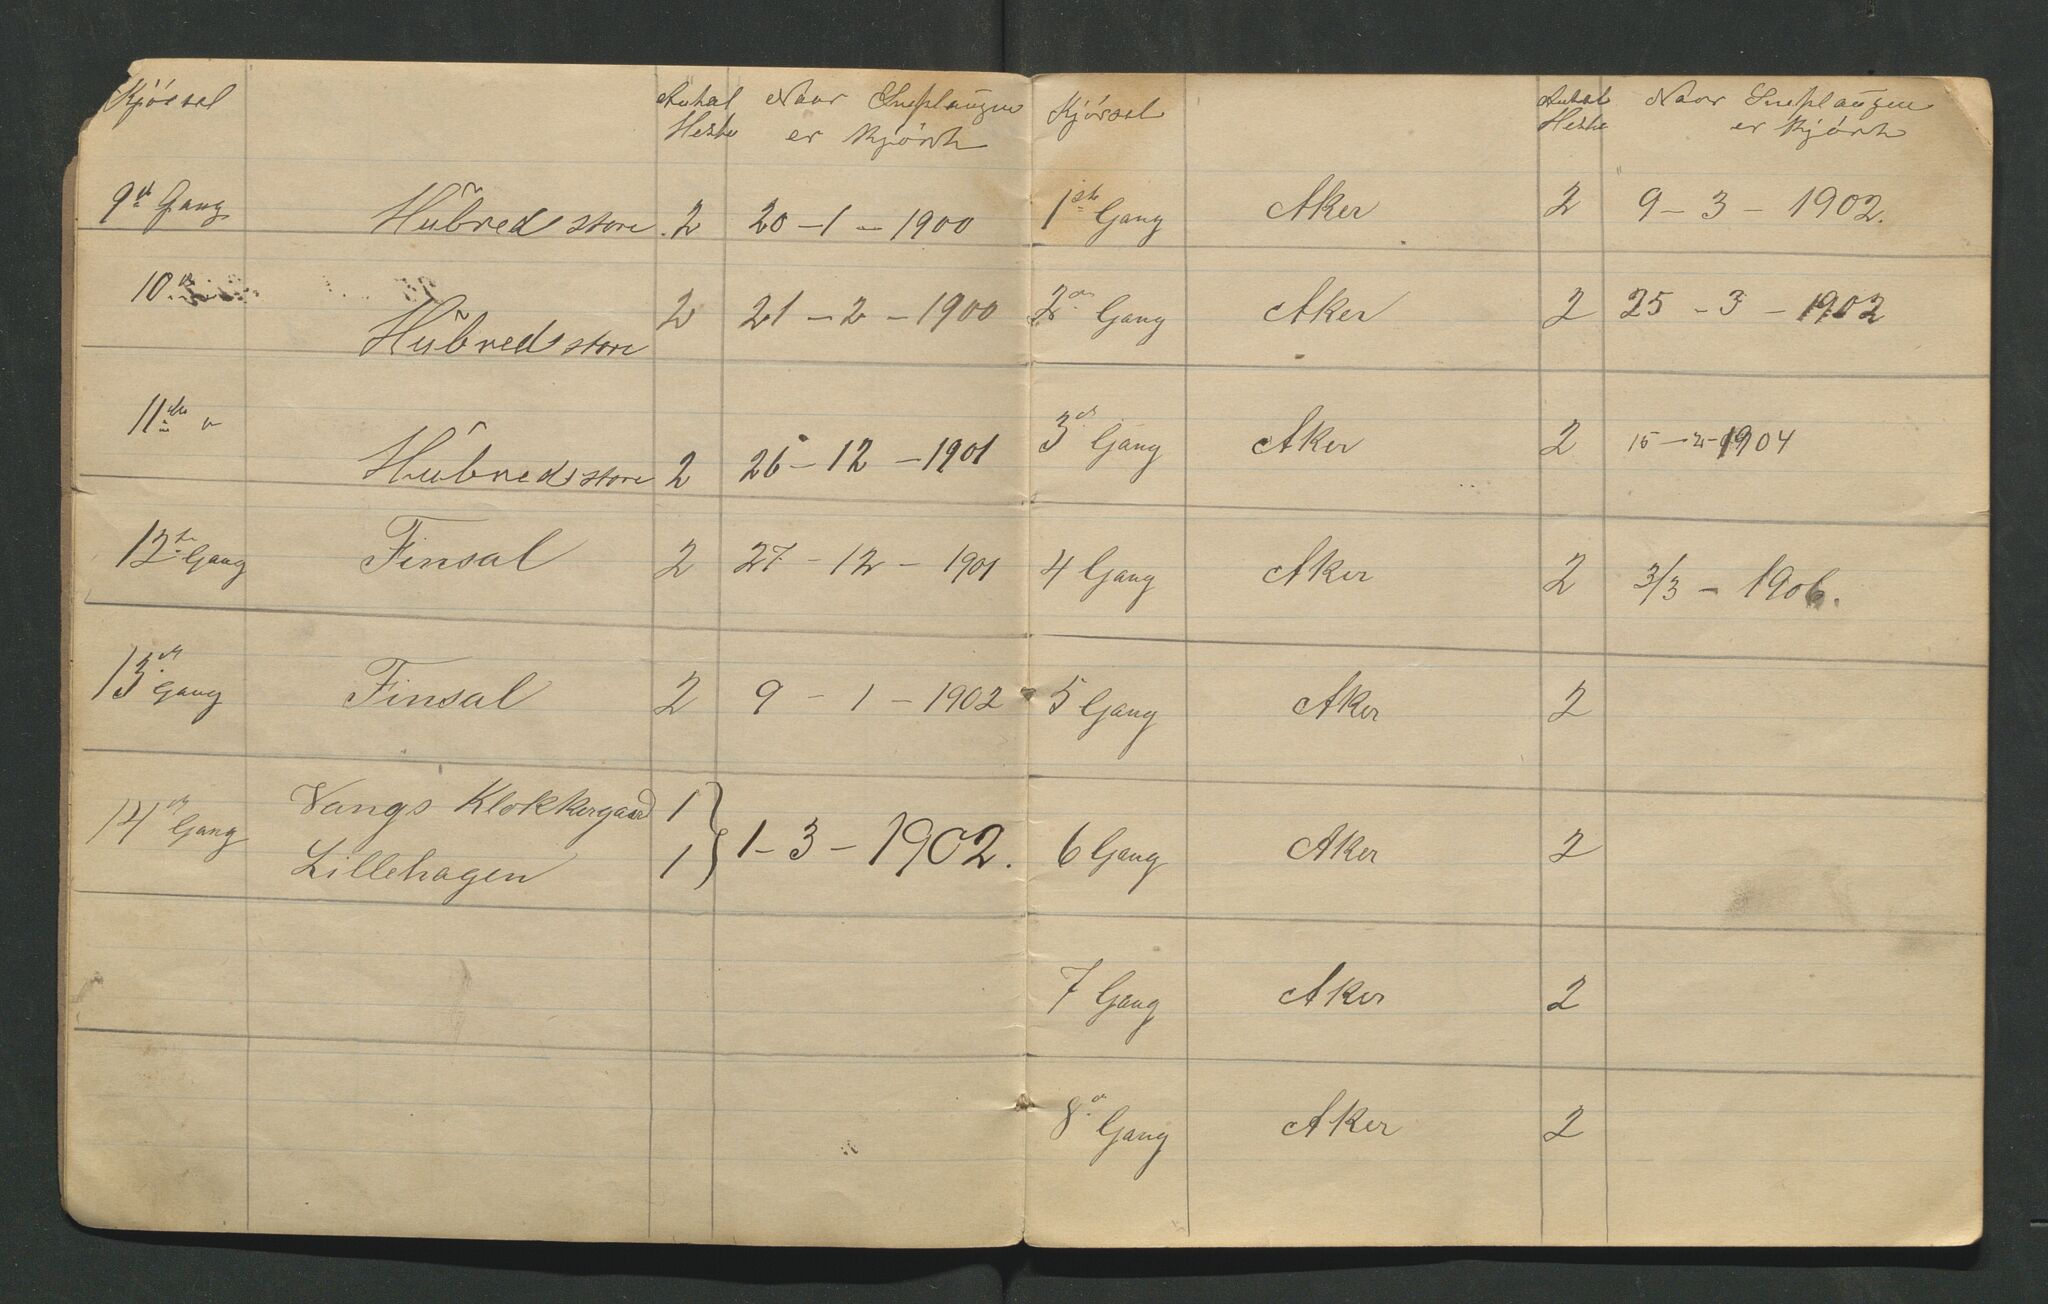 Kjörsel Antal Naar Sneplaugen
Heste er kjört
9de Gang Hübred store 2 20 - 1 - 1900
10de
Hübred store 2 21 - 2 - 1900
11te "
Hübred store 2 26 - 12 - 1901
12te Gang Finsal 2 27 - 12 - 1901
13de Gang Finsal 2 9 - 1 - 1902
14de Gang Vangs Klokkergaard 1
Lillehagen 1 } 1 - 3 - 1902.
Kjörsel Antal Naar Sneplaugen
Heste er kjört
1ste Gang Aker 2 9 - 3 - 1902.
2den Gang Aker 2 25 - 3 - 1902
3de Gang Aker 2 15 - 2 - 1904
4 Gang Aker 2 3/3 - 1906.
5 Gang Aker 2
6 Gang Aker 2
7 Gang Aker 2
8de Gang Aker 2